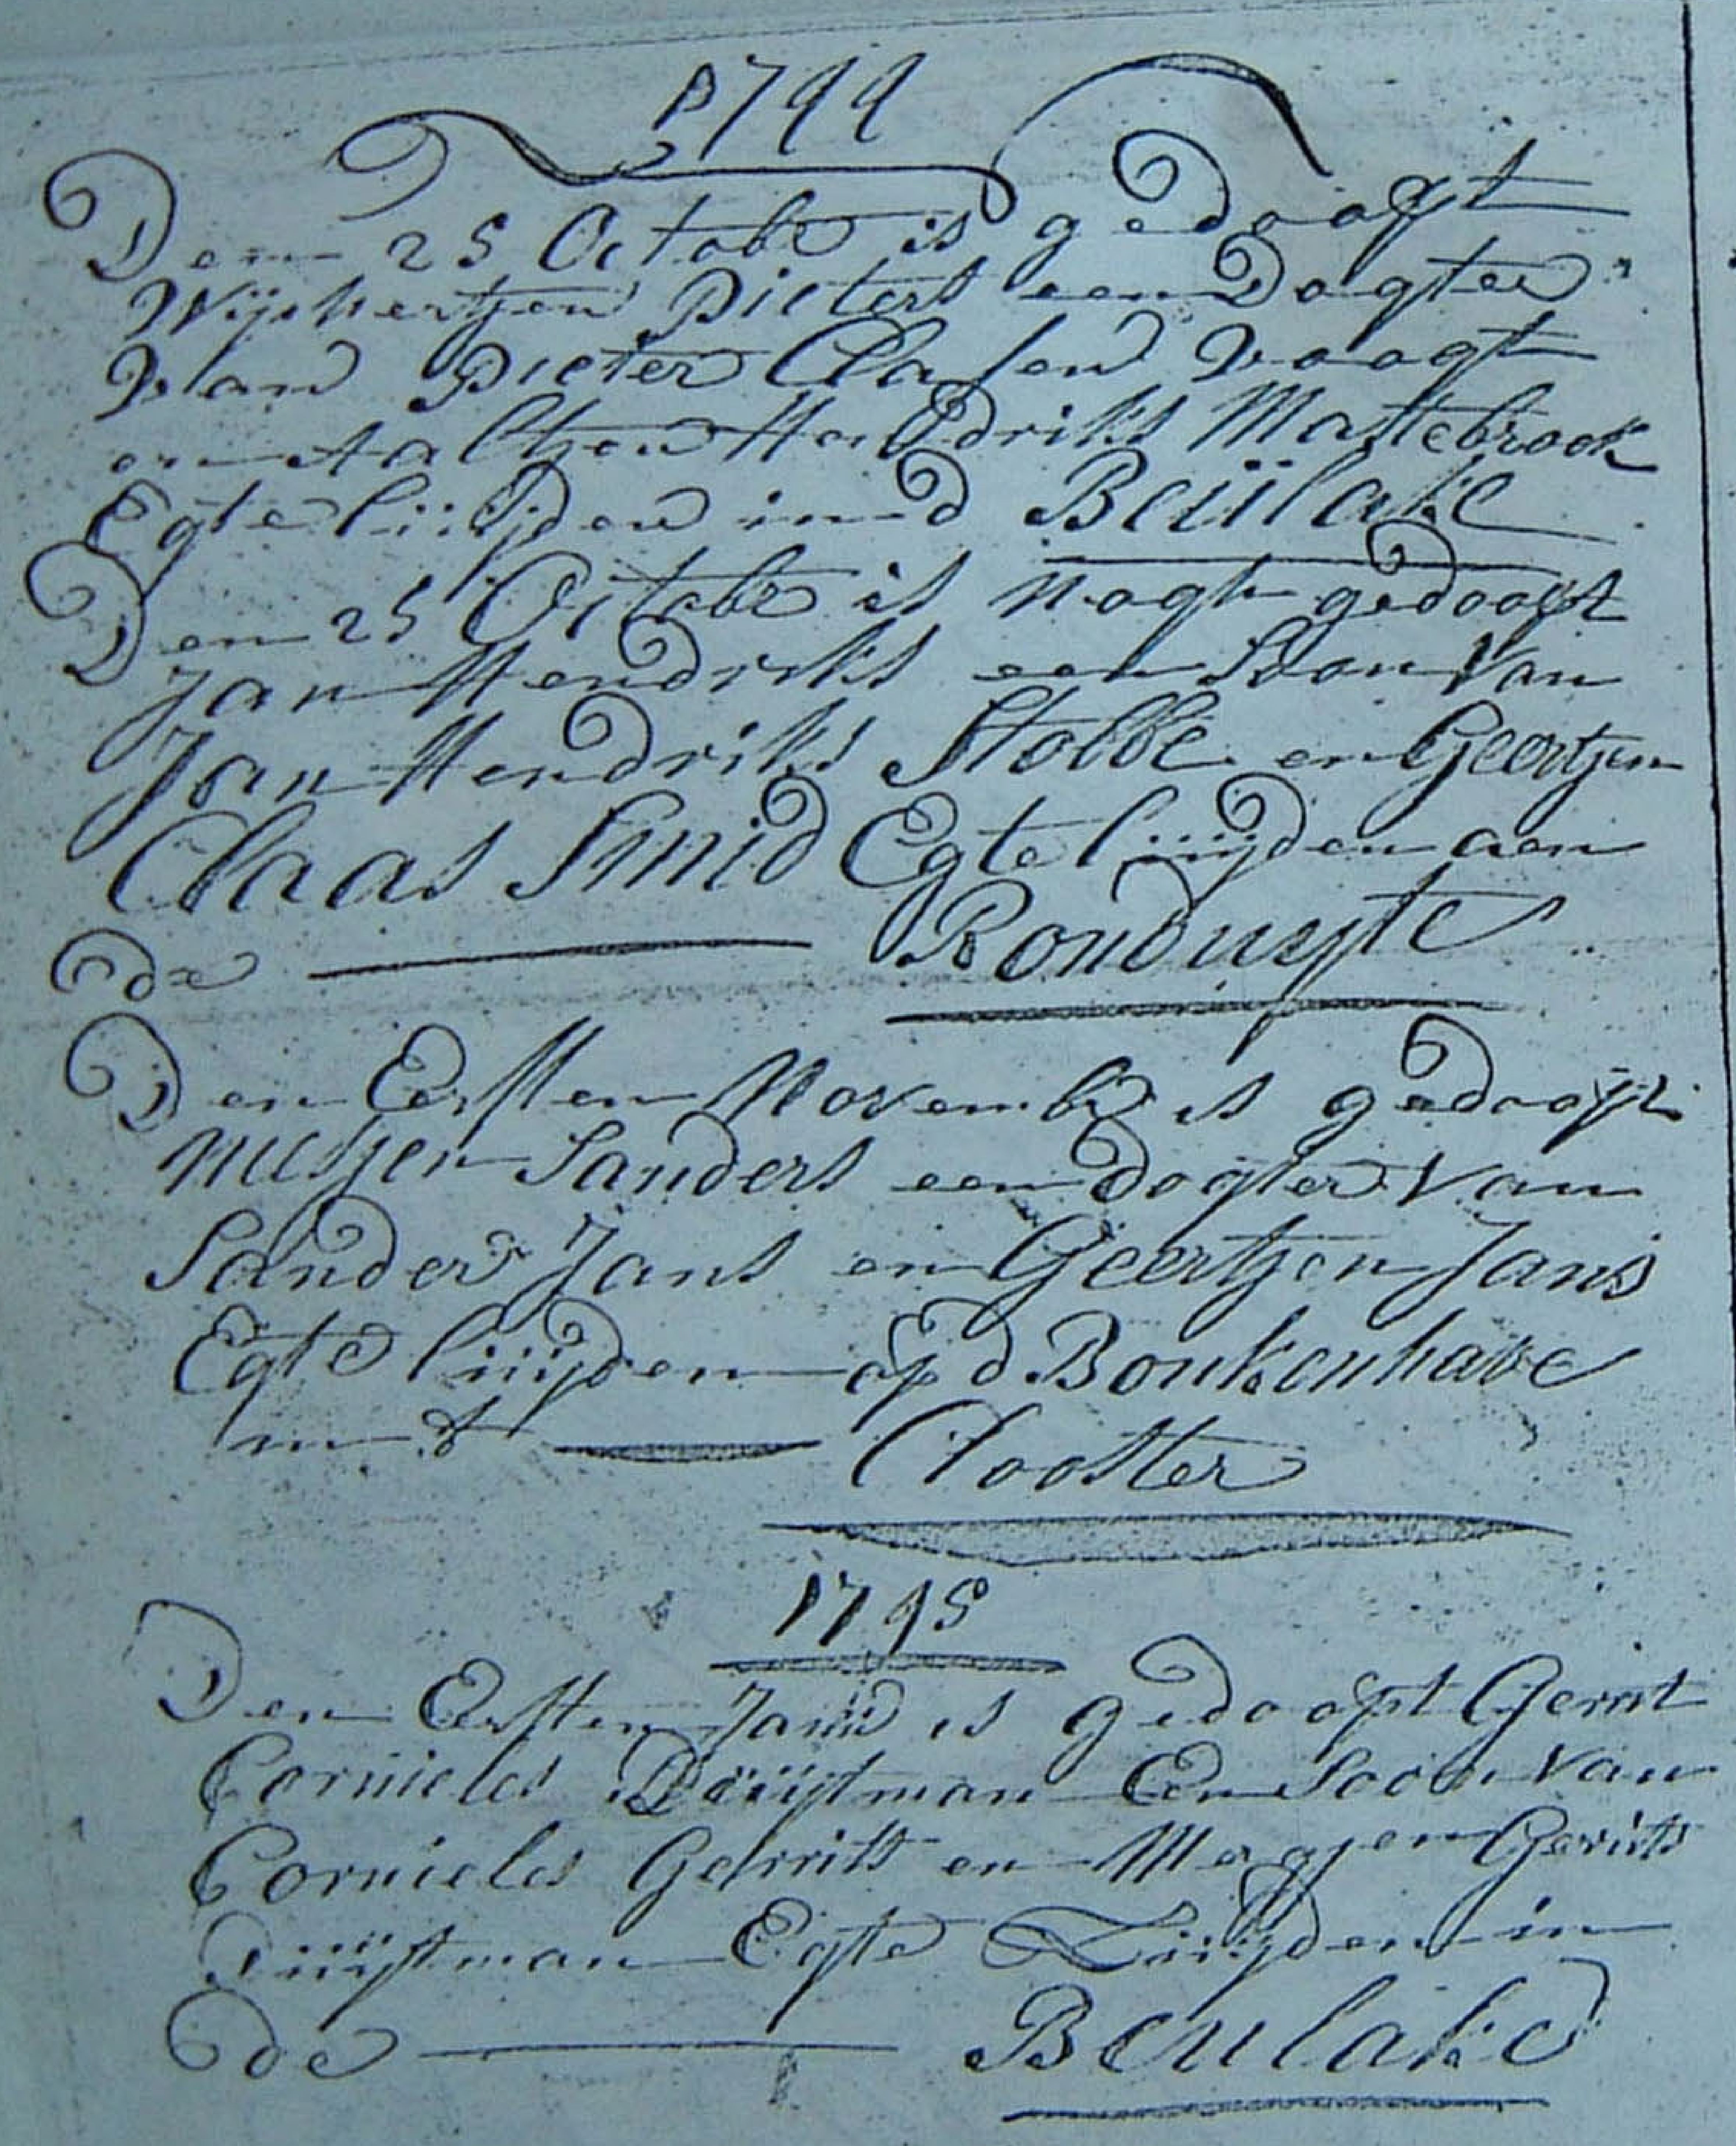 1744
Den 25 Octobr is gedoopt
Wijchertjen Pieters een Dogter
Van Pieter Clasen Voogt
en Aaltjen Hendriks Mastebroek
Egte liüijden in d Beülake
Den 25 Octobr is nogh gedoopt
Jan Hendriks een Soon Van
Jan Hendriks Stobbe en Geertjen
Claas Smid Egte liüijden aen
de Ronduyte
Den Eersten Novembr is gedoopt
Sanders een Dogter Van
Sander Jans en Geertjen Jans
Egte liüijden op d Bonkenhave
in t Clooster
1745
Den Eersten Janü is gedoopt Gerrit
Cornieles Düijstman Een Soon Van
Cornieles Gerrits en Mergjen Gerrits
Düijstman Egte Lüijden in
de Beulake